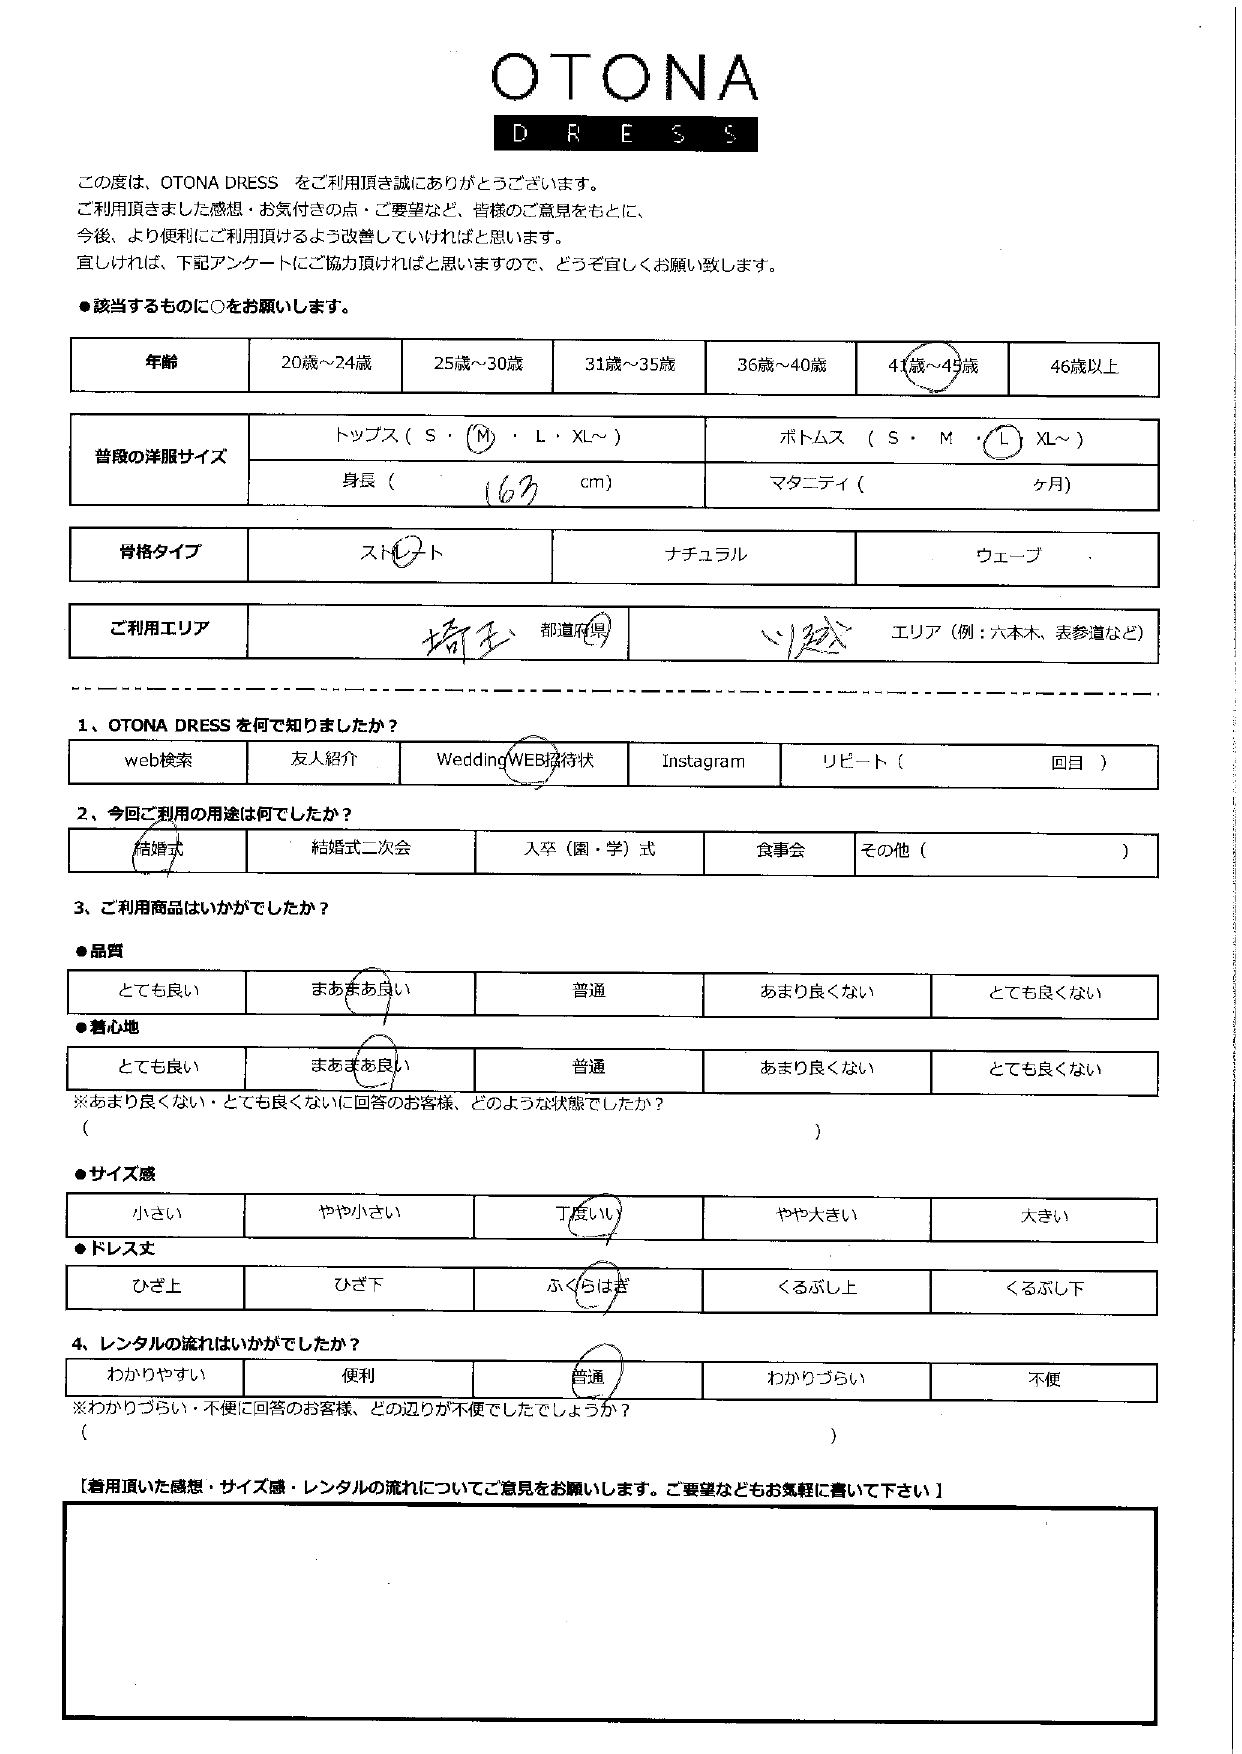 OTONA
DRESS
この度は、OTONA DRESS をご利用頂き誠にありがとうございます。
ご利用頂きました感想・お気付きの点・ご要望など、皆様のご意見をもとに、
今後、より便利にご利用頂けるよう改善していければと思います。
宜しければ、下記アンケートにご協力頂ければと思いますので、どうぞ宜しくお願い致します。
●該当するものに○をお願いします。
年齢 20歳～24歳 25歳～30歳 31歳～35歳 36歳～40歳 41歳～45歳 46歳以上
普段の洋服サイズ トップス ( S ・ M ・ L ・ XL～ ) ボトムス ( S ・ M ・ L XL～ )
身長 ( 163 cm) マタニティ ( ヶ月)
骨格タイプ ストレート ナチュラル ウェーブ
ご利用エリア 埼玉 都道府県 川越 エリア（例：六本木、表参道など）
1、OTONA DRESS を何で知りましたか？
web検索 友人紹介 WeddingWEB招待状 Instagram リピート（ 回目 ）
2、今回ご利用の用途は何でしたか？
結婚式 結婚式二次会 入卒（園・学）式 食事会 その他（ ）
3、ご利用商品はいかがでしたか？
●品質
とても良い まあまあ良い 普通 あまり良くない とても良くない
●着心地
とても良い まあまあ良い 普通 あまり良くない とても良くない
※あまり良くない・とても良くないに回答のお客様、どのような状態でしたか？
( )
●サイズ感
小さい やや小さい 丁度いい やや大きい 大きい
●ドレス丈
ひざ上 ひざ下 ふくらはぎ くるぶし上 くるぶし下
4、レンタルの流れはいかがでしたか？
わかりやすい 便利 普通 わかりづらい 不便
※わかりづらい・不便に回答のお客様、どの辺りが不便でしたでしょうか？
( )
【着用頂いた感想・サイズ感・レンタルの流れについてご意見をお願いします。ご要望などもお気軽に書いて下さい 】